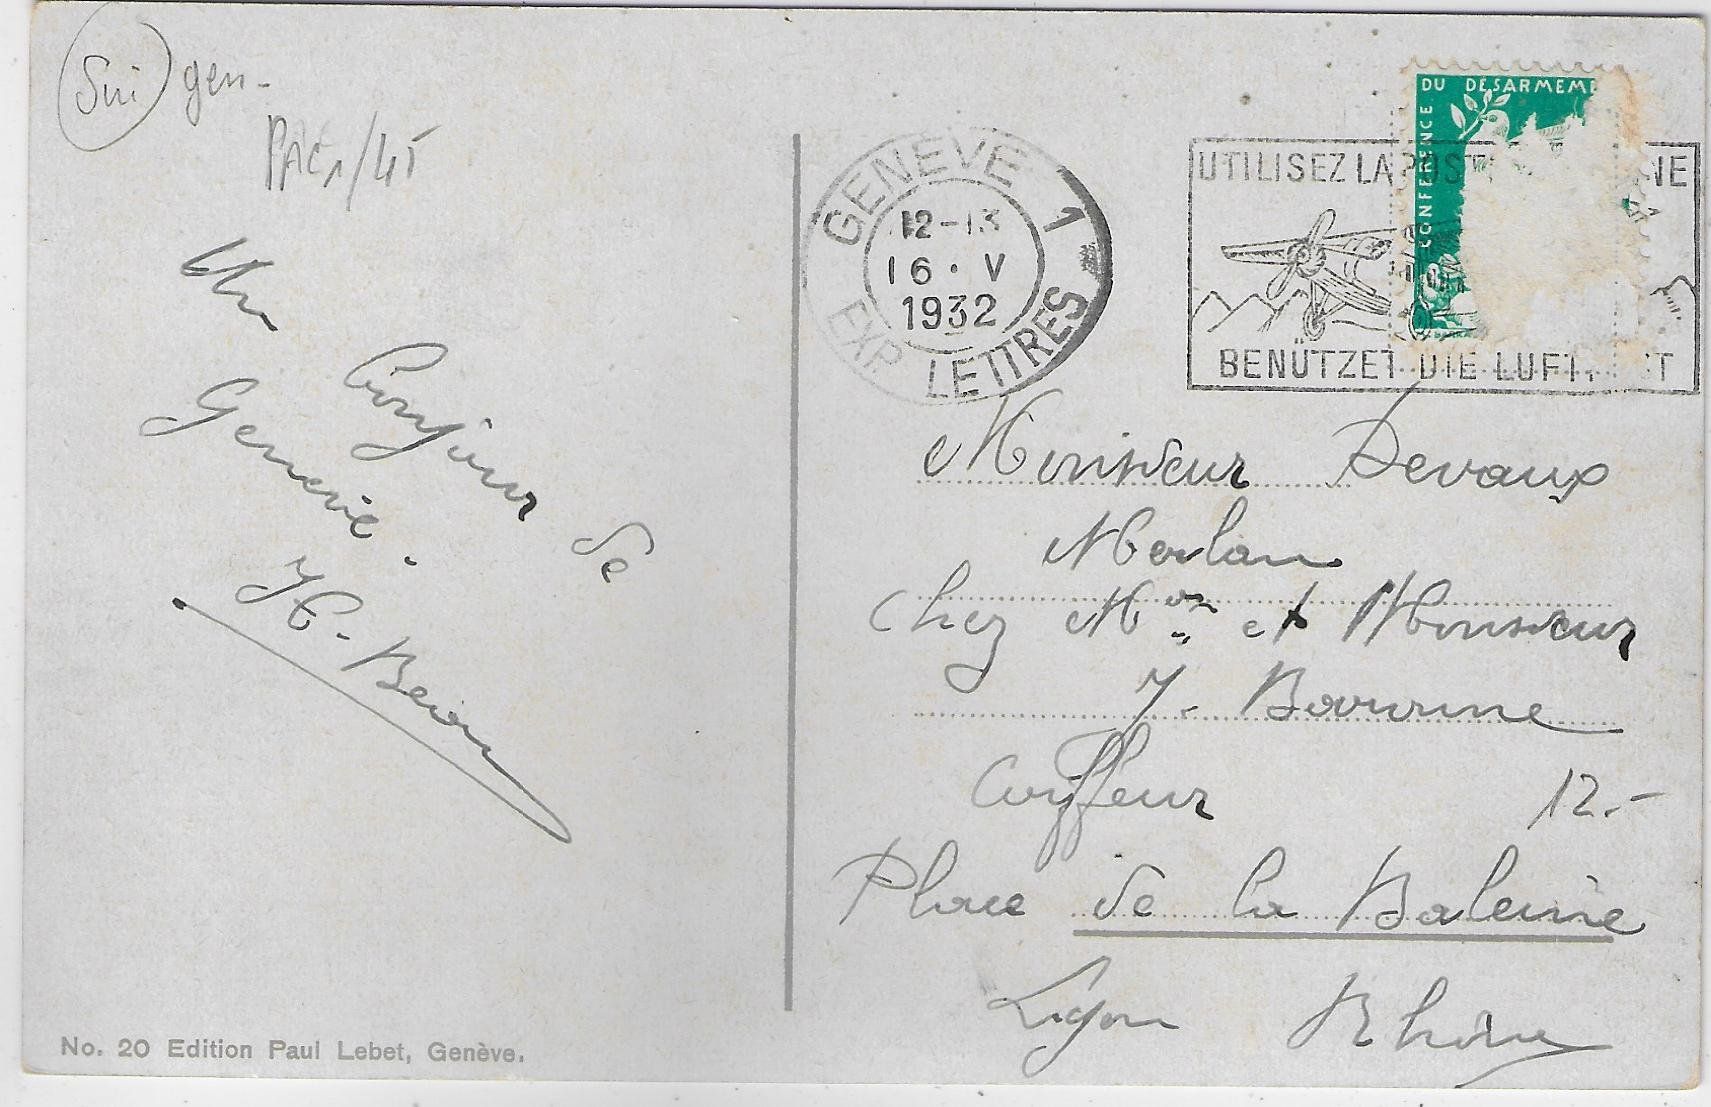 Sui gen-
GENÈVE 1
12-13
16.V
1932
EXP. LETTRES
UTILISEZ LA POST NE
CONFERENCE DU DÉSARMEME
BENÜTZET DIE LUFT T
Un
bonjour de
Genève.
Monsieur Devaux
Merlan
Chez Mme et Monsieur
Coiffeur
12.-
Place de la Baleine
Lyon Rhône
No. 20 Edition Paul Lebet, Genève.